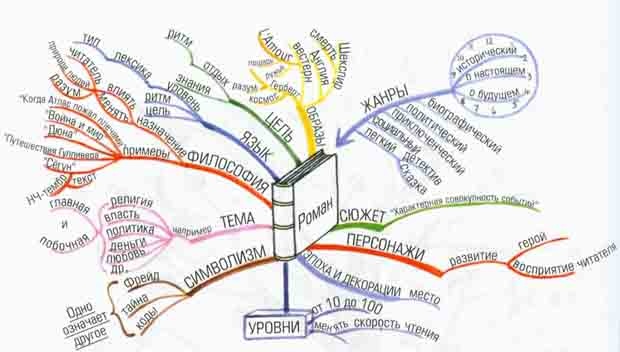 Роман
ЖАНРЫ
исторический
о настоящем
о будущем
12
биографический
политический
приключенческий
социальный
детектив
легкий
сказка
СЮЖЕТ
"Характерная совокупность событий"
ПЕРСОНАЖИ
развитие
герой
восприятие читателя
ЭПОХА И ДЕКОРАЦИИ
место
УРОВНИ
от 10 до 100
менять скорость чтения
СИМВОЛИЗМ
Фрейд
тайна
коды
Одно
означает
другое
ТЕМА
например
религия
власть
политика
деньги
любовь
др.
главная
и
побочная
ФИЛОСОФИЯ
назначения
влиять
менять
читатель
разум
примеры
"Когда Атлас пожал плечами"
"Война и мир"
"Дюна"
"Путешествия Гулливера"
"Сёгун"
текст
ЯЗЫК
уровень
лексика
тип
ритм
цель
ЦЕЛЬ
знания
отдых
ритм
ОБРАЗЫ
Шекспир
смерть
Англия
вестерн
L'Amour
лошадь
ружьё
Герберт
разум
космос